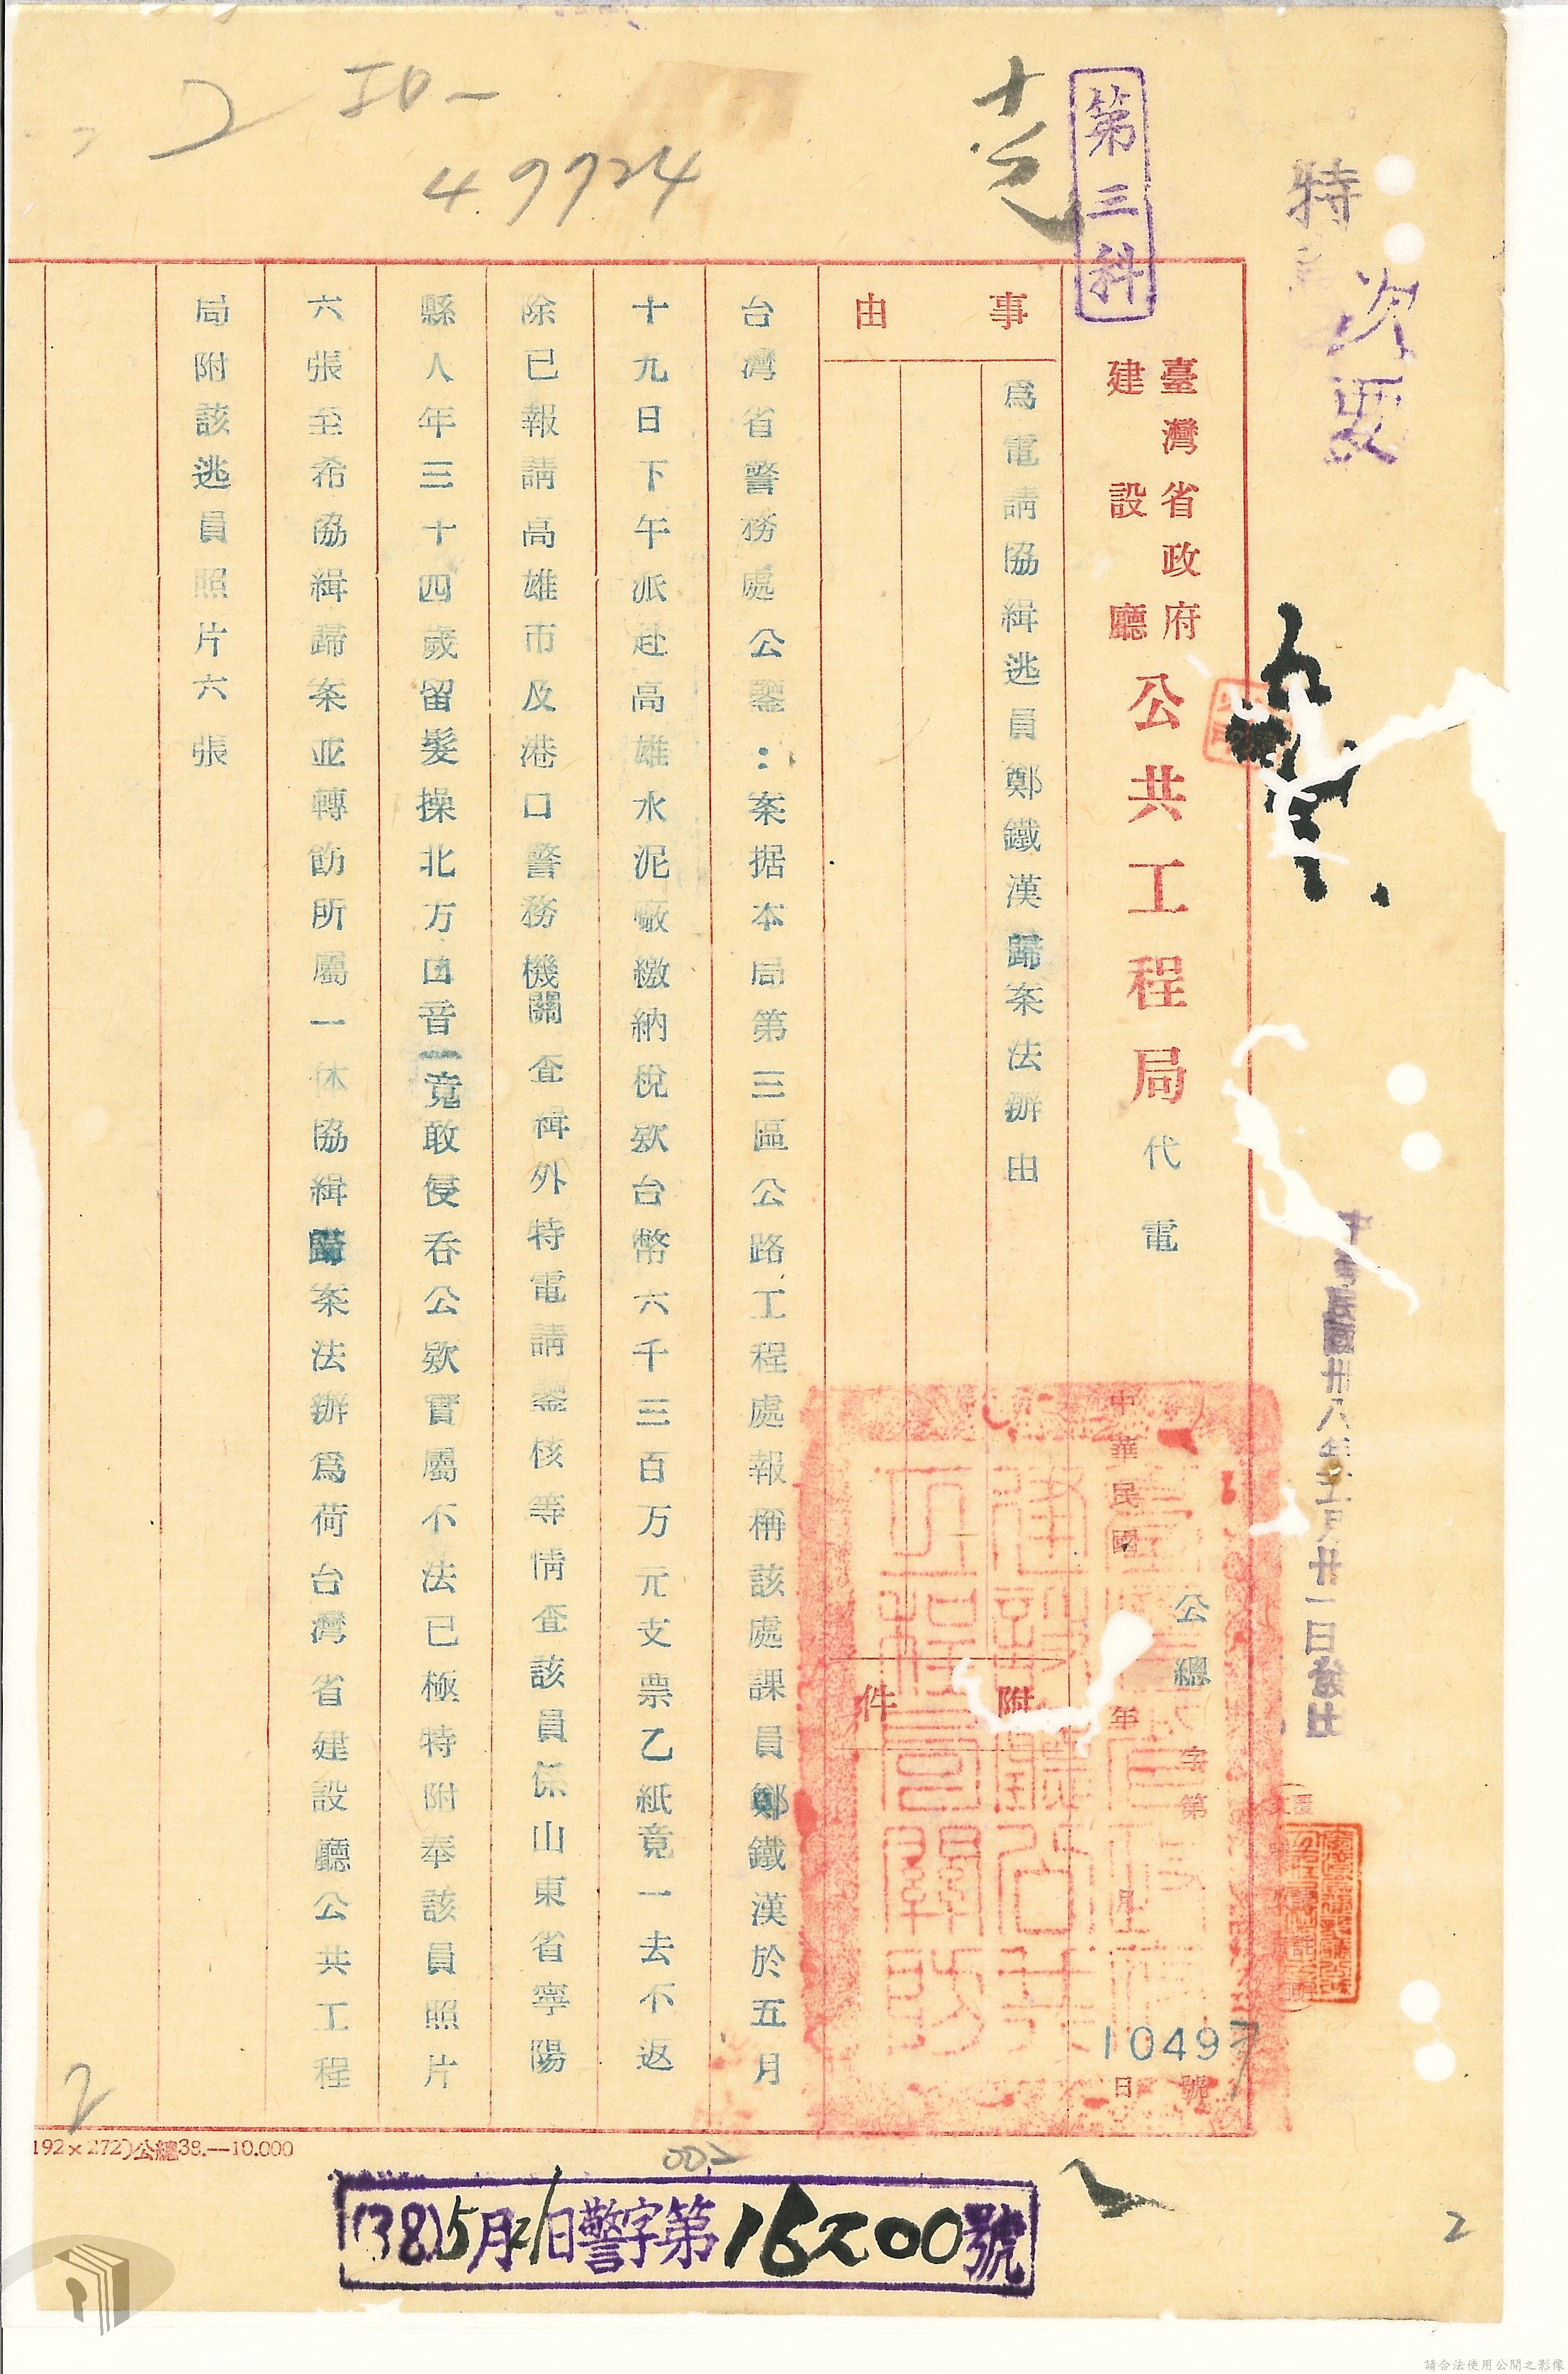 特
次要
中華民國卅八年五月廿一日發出
第三科
49724
臺灣省政府
建設廳
公共工程局
代電
公總字第10497號
中華民國 年 月 日
事由
為電請協緝逃員鄭鐵漢歸案法辦由
附件
台灣省警務處公鑒：案据本局第三區公路工程處報稱該處課員鄭鐵漢於五月
十九日下午派赴高雄水泥廠繳納稅欵台幣六千三百万元支票乙紙竟一去不返
除已報請高雄市及港口警務機關查緝外特電請鑒核等情查該員係山東省寧陽
縣人年三十四歲留髮操北方口音竟敢侵吞公欵實屬不法已極特附奉該員照片
六張至希協緝歸案並轉飭所屬一体協緝歸案法辦為荷台灣省建設廳公共工程
局附該逃員照片六張
2
192×272)公總38.—10.000
002
(38)5月21日警字第16200號
2
請合法使用公開之影像